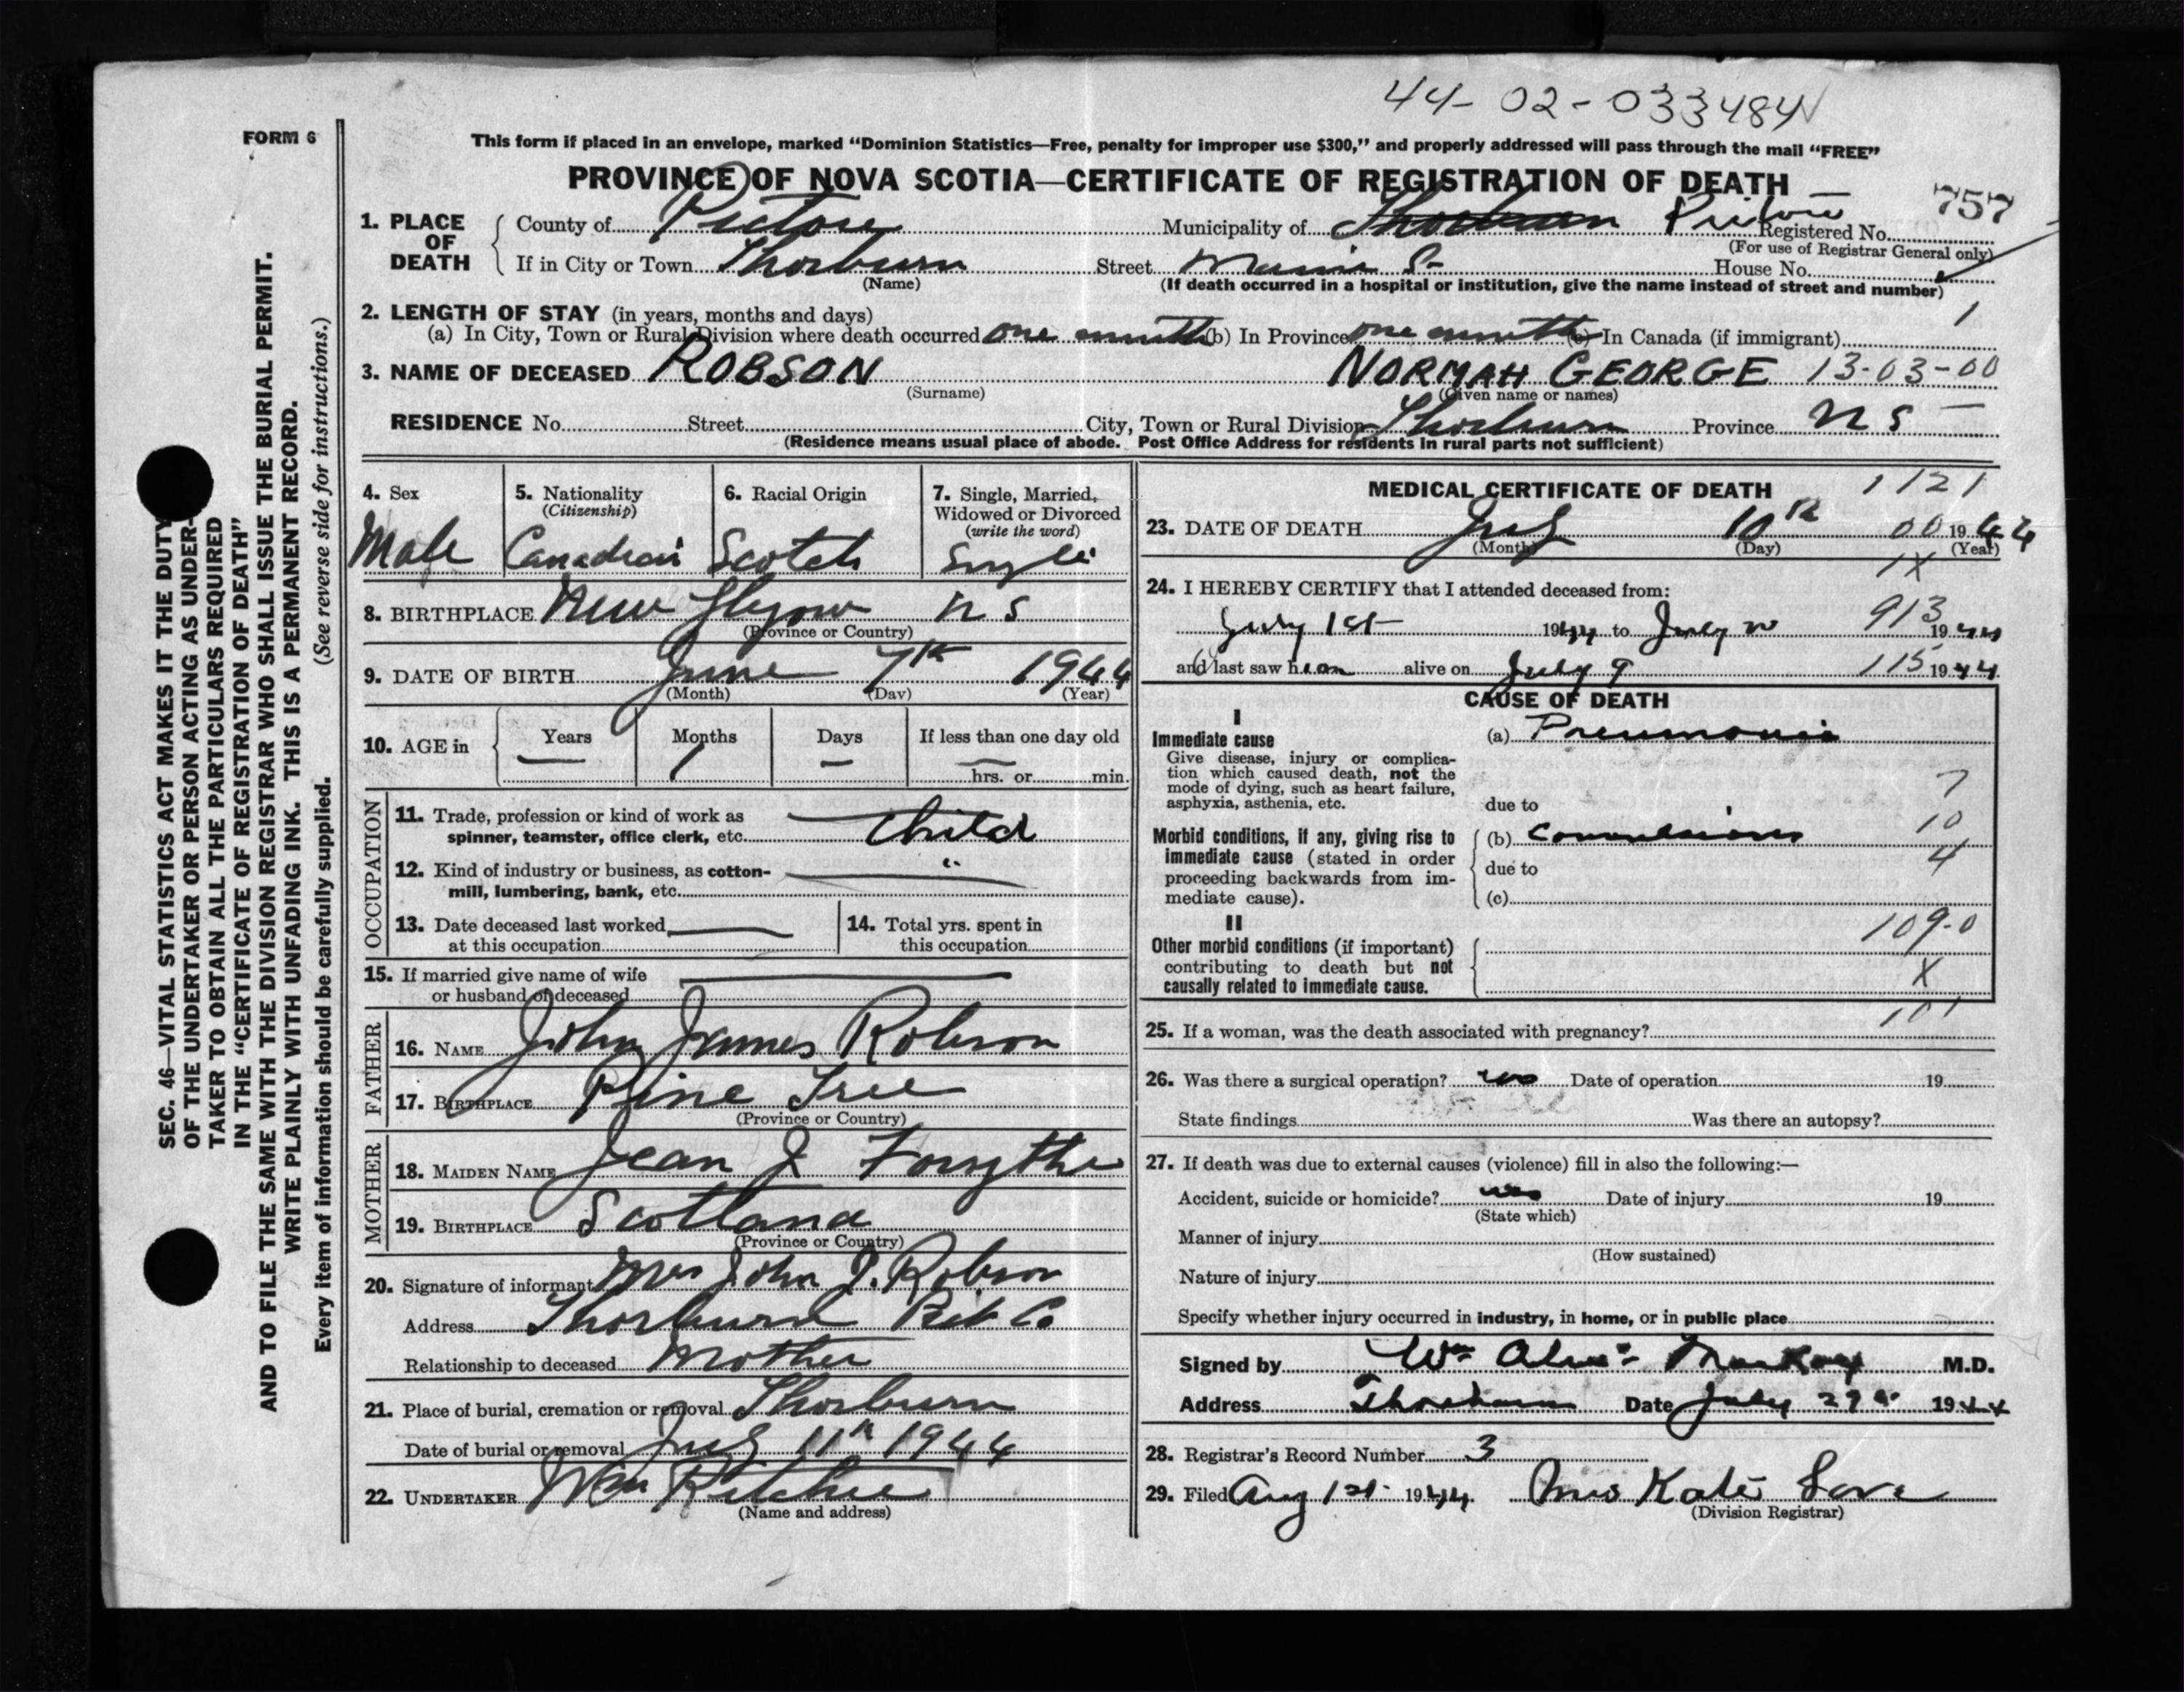 44-02-033484
FORM 6
This form if placed in an envelope, marked "Dominion Statistics—Free, penalty for improper use $300," and properly addressed will pass through the mail "FREE"
PROVINCE OF NOVA SCOTIA—CERTIFICATE OF REGISTRATION OF DEATH
757
1. PLACE OF DEATH
County of Pictou Municipality of Thorburn Pictou Registered No.
(For use of Registrar General only)
If in City or Town Thorburn Street Main St House No.
(Name) (If death occurred in a hospital or institution, give the name instead of street and number)
1
2. LENGTH OF STAY (in years, months and days)
(a) In City, Town or Rural Division where death occurred one month (b) In Province one month (c) In Canada (if immigrant)
3. NAME OF DECEASED ROBSON NORMAN GEORGE 13-03-00
(Surname) (Given name or names)
RESIDENCE No. Street City, Town or Rural Division Thorburn Province N S
(Residence means usual place of abode. Post Office Address for residents in rural parts not sufficient)
4. Sex
Male
5. Nationality
(Citizenship)
Canadian
6. Racial Origin
Scotch
7. Single, Married,
Widowed or Divorced
(write the word)
Single
8. BIRTHPLACE New Glasgow N S
(Province or Country)
9. DATE OF BIRTH June 7th 1944
(Month) (Day) (Year)
10. AGE in Years Months Days If less than one day old
— 1 — —
hrs. or min.
OCCUPATION
11. Trade, profession or kind of work as
spinner, teamster, office clerk, etc. Child
12. Kind of industry or business, as cotton-
mill, lumbering, bank, etc. "
13. Date deceased last worked
at this occupation
14. Total yrs. spent in
this occupation
15. If married give name of wife
or husband of deceased
FATHER
16. NAME John James Robson
17. BIRTHPLACE Pine Tree
(Province or Country)
MOTHER
18. MAIDEN NAME Jean J Forsythe
19. BIRTHPLACE Scotland
(Province or Country)
20. Signature of informant Mrs John J. Robson
Address Thorburn Pict Co
Relationship to deceased Mother
21. Place of burial, cremation or removal Thorburn
Date of burial or removal July 11th 1944
22. UNDERTAKER Wm Ritchie
(Name and address)
MEDICAL CERTIFICATE OF DEATH 1121
23. DATE OF DEATH July 10th 00 1944
(Month) (Day) (Year)
1X
24. I HEREBY CERTIFY that I attended deceased from:
913
July 1st 1944 to July 10 1944
and last saw him alive on July 9 115 1944
CAUSE OF DEATH
I
Immediate cause
Give disease, injury or complica-
tion which caused death, not the
mode of dying, such as heart failure,
asphyxia, asthenia, etc.
(a) Pneumonia
7
due to
10
Morbid conditions, if any, giving rise to
immediate cause (stated in order
proceeding backwards from im-
mediate cause).
(b) Convulsions
4
due to
(c)
109-0
II
Other morbid conditions (if important)
contributing to death but not
causally related to immediate cause.
X
101
25. If a woman, was the death associated with pregnancy?
26. Was there a surgical operation? no Date of operation 19
State findings Was there an autopsy?
27. If death was due to external causes (violence) fill in also the following:—
Accident, suicide or homicide? no Date of injury 19
(State which)
Manner of injury
(How sustained)
Nature of injury
Specify whether injury occurred in industry, in home, or in public place
Signed by Wm MacKay M.D.
Address Thorburn Date July 1944
28. Registrar's Record Number 3
29. Filed Aug 1st 1944 Mrs Kate Love
(Division Registrar)
SEC. 46—VITAL STATISTICS ACT MAKES IT THE DUTY
OF THE UNDERTAKER OR PERSON ACTING AS UNDER-
TAKER TO OBTAIN ALL THE PARTICULARS REQUIRED
IN THE "CERTIFICATE OF REGISTRATION OF DEATH"
AND TO FILE THE SAME WITH THE DIVISION REGISTRAR WHO SHALL ISSUE THE BURIAL PERMIT.
WRITE PLAINLY WITH UNFADING INK. THIS IS A PERMANENT RECORD.
Every item of information should be carefully supplied. (See reverse side for instructions.)